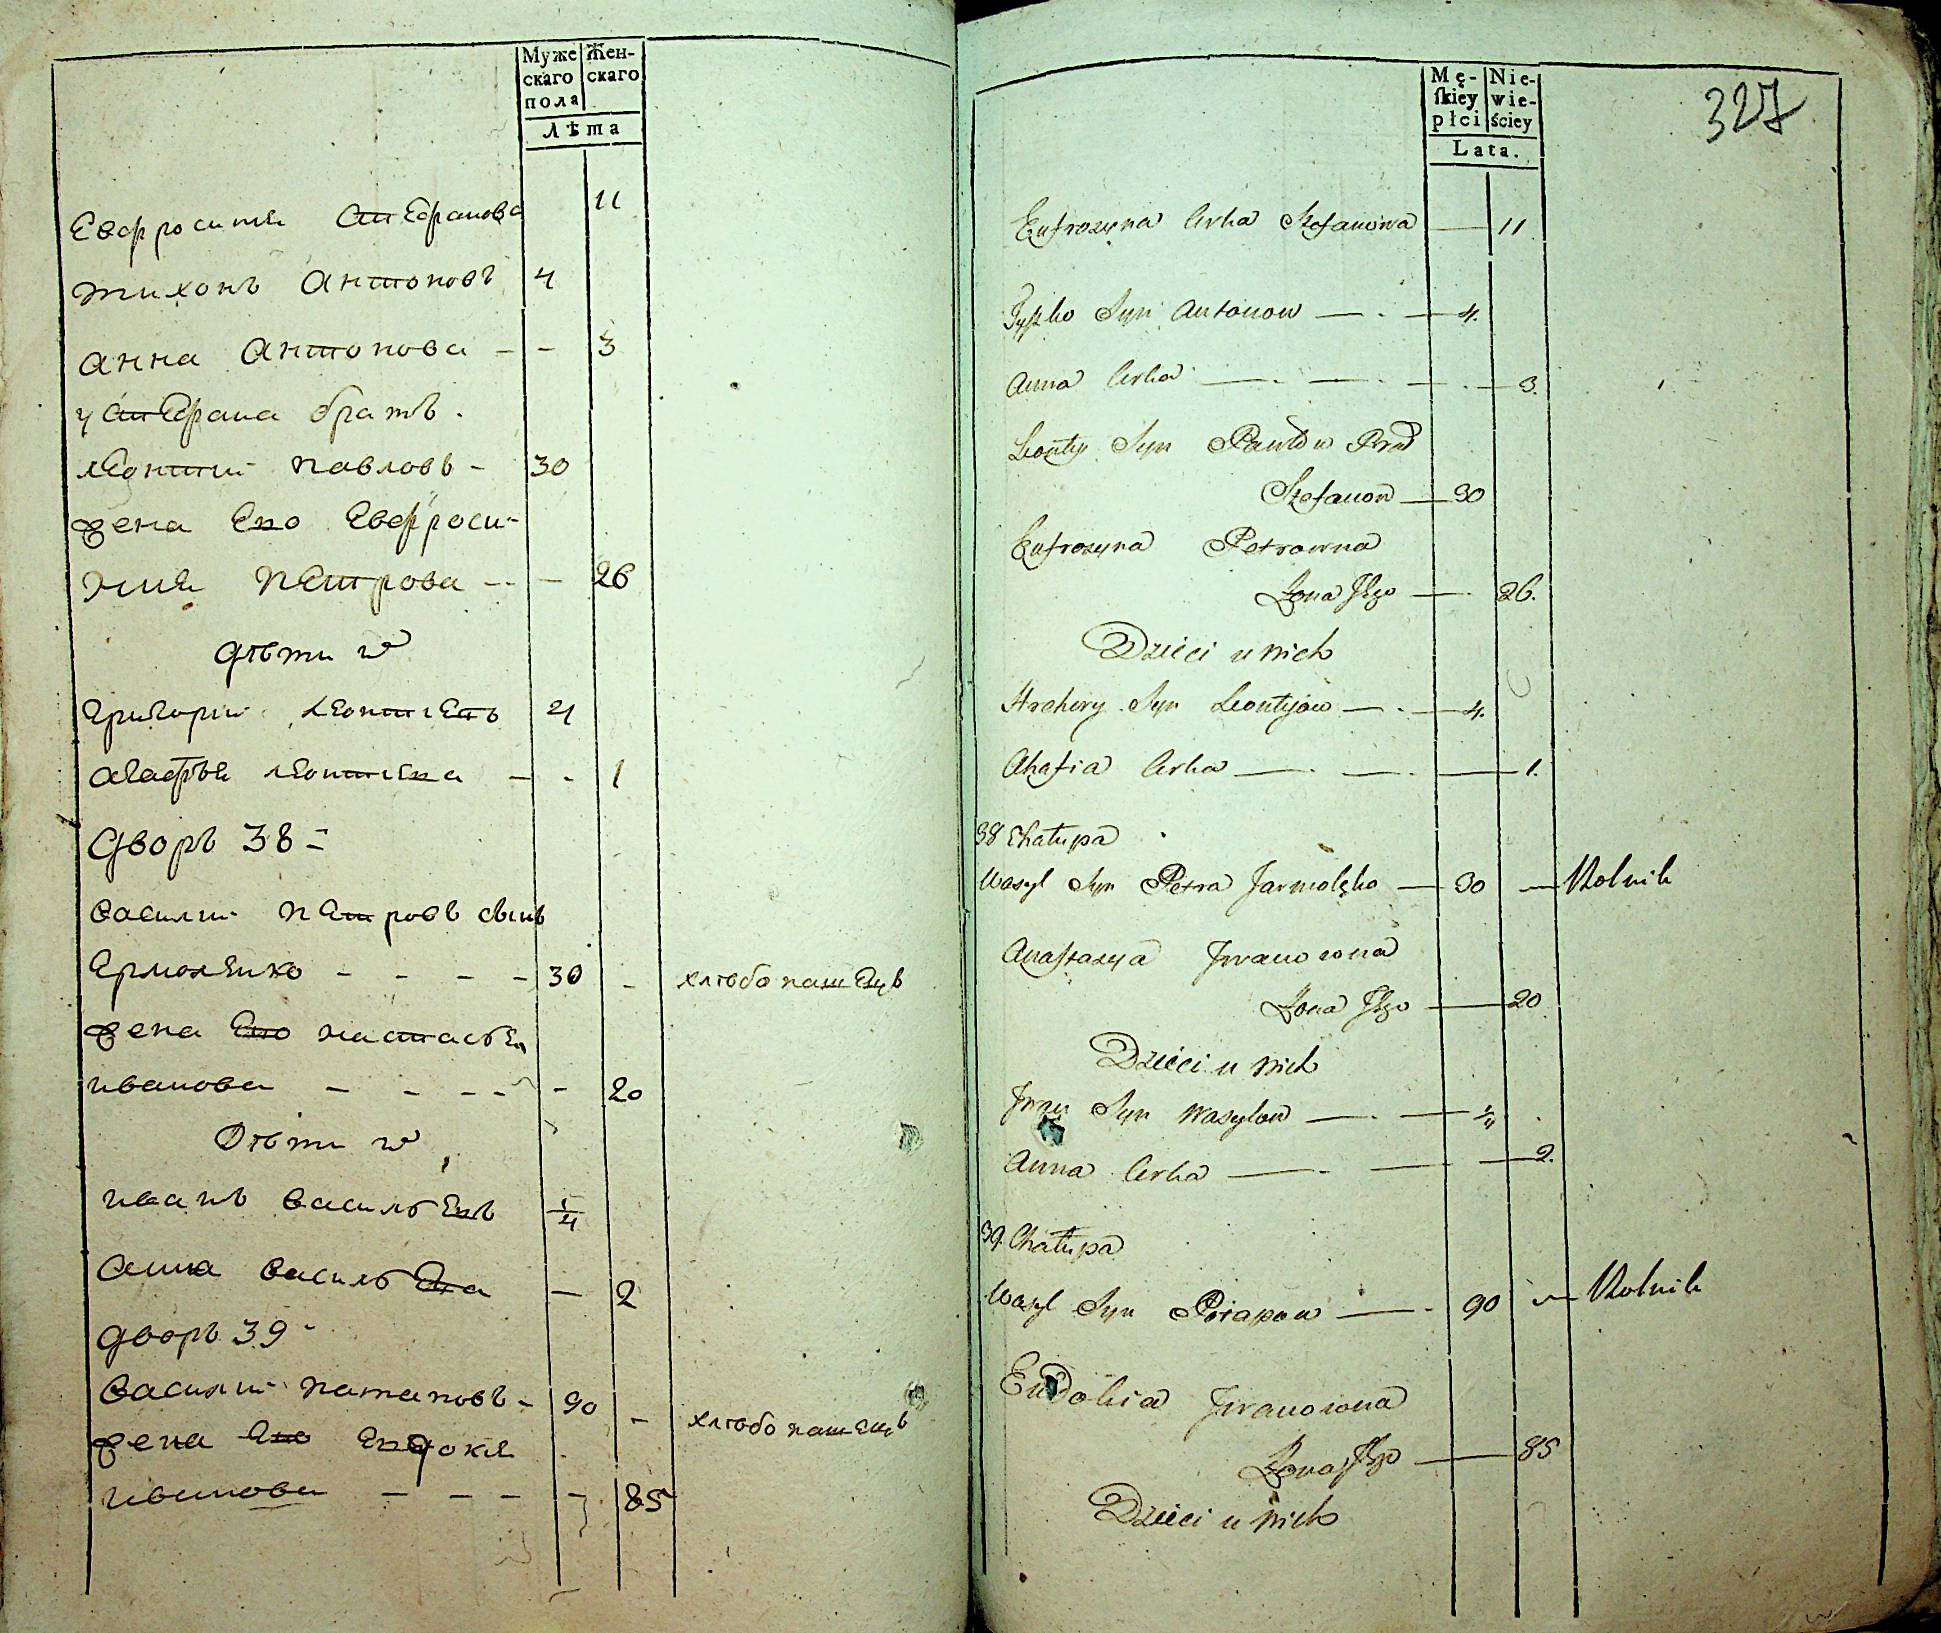 Муже
скаго
пола
Жен-
скаго
лѣта
Евфросинія Стефанова 11
тихонъ Антоновъ 4
анна Антонова - - 3
у Стефана братъ.
леонтий павловъ - 30
жена Его Евфроси-
ния петрова - - - 26
дѣти
григорий леонтиевъ 4
агафья леонтиева - - 1
дворъ 38 -
василий петровъ сынъ
Ермоленко - - - - 30 - хлѣбопашецъ
жена Его настасья
иванова - - - - - 20
Дѣти
иванъ васильевъ 1/4
анна васильева - 2
дворъ 39 -
василий патаповъ - 90 - хлѣбопашецъ
жена Его Евдокия
иванова - - - - 85
Mę-
ſkiey
płci
Nie-
wie-
ściey
Lata.
327
Eufrozyna Corka Stefanowa — 11
Syn Antonow — . — 4.
Anna Corka — . — . — . — 3.
Leonty Syn Pawłow Brat
Stefanow — 30
Eufrozyna Petrowna
Żona Jego — . 26.
Dzieci u nich
Hrehory Syn Leontyiow — . — 4.
Ahafia Corka — . — . — 1.
38 Chałupa
Wasyl Syn Petra Jarmolenko — 30 — Rolnik
Anastazya Iwanowna
Żona Jego — 20
Dzieci u nich
Iwan Syn Wasylow — . — 1/4 .
Anna Corka — . — — 2.
39. Chałupa
Wasyl Syn Potapow — . 90 — Rolnik
Eudokia Iwanowna
Żona Jego — 85
Dzieci u nich